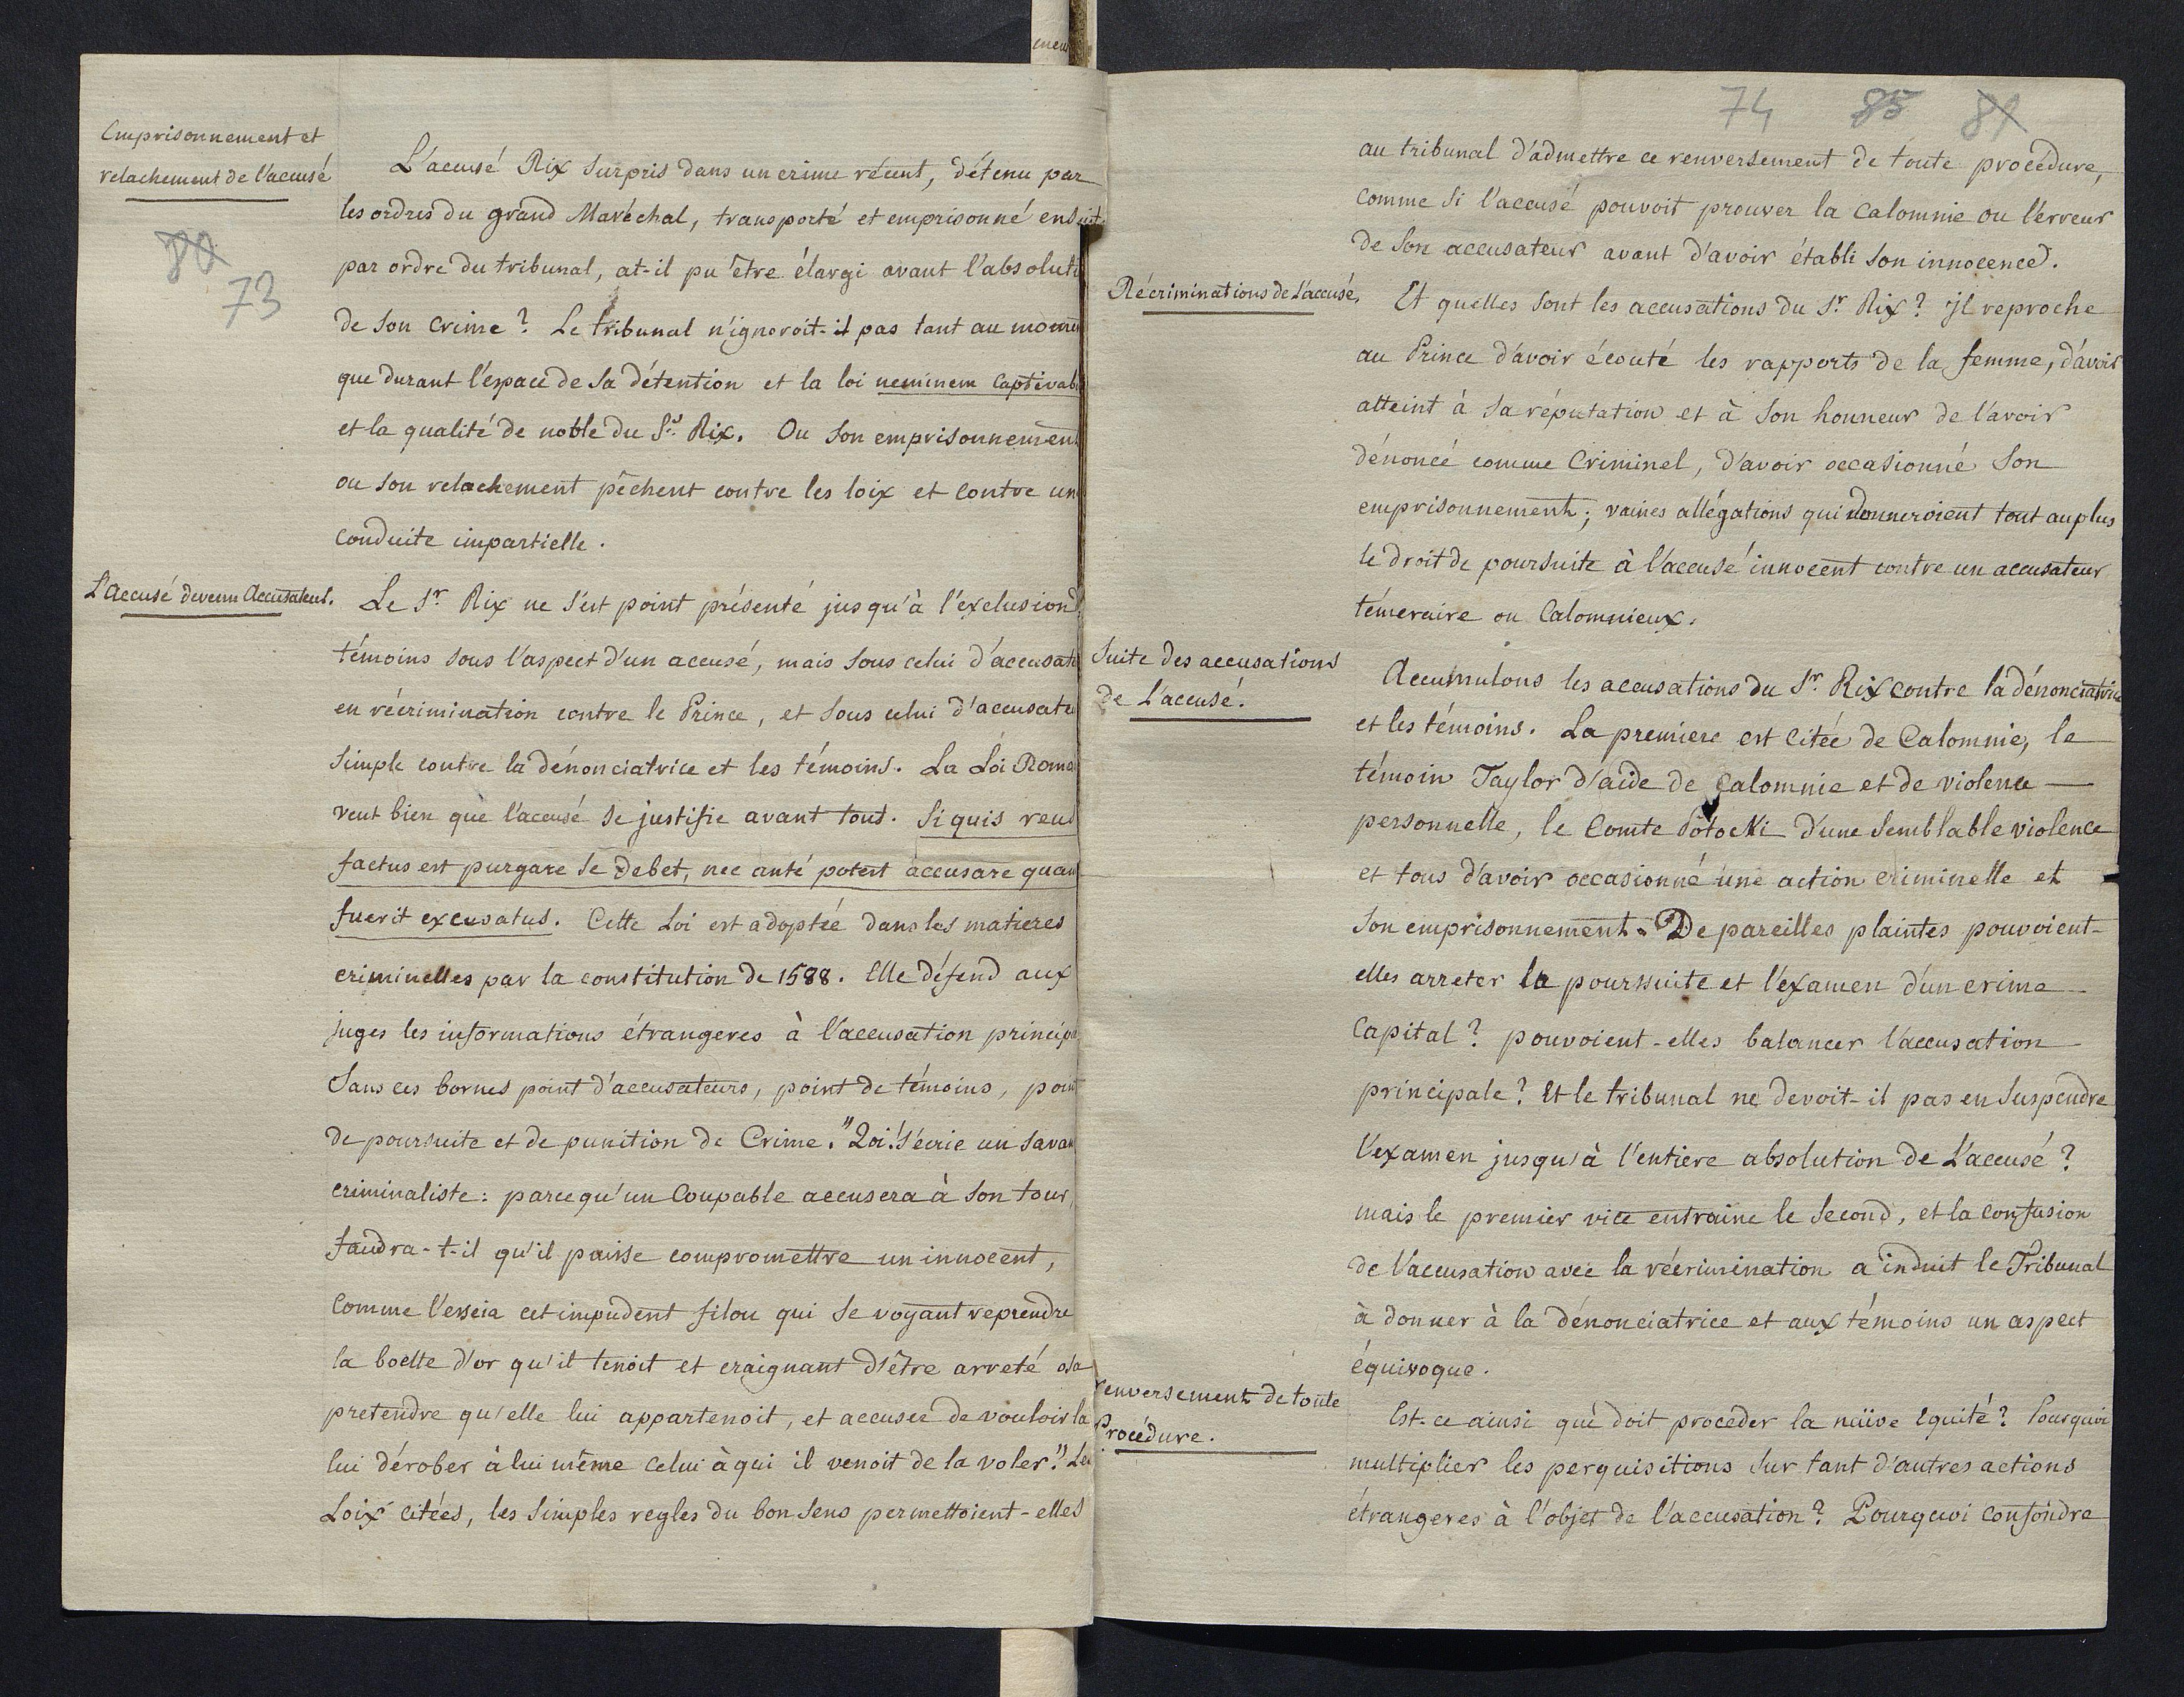 Emprisonnement et
relachement de l'accusé
80
73
L'accusé Rix surpris dans un crime récent, détenu par
les ordres du grand Maréchal, transporté et emprisonné ensuit
par ordre du tribunal, at-il pu être élargi avant l'absoluti
de son crime? Le tribunal n'ignoroit-il pas tant au momen
que durant l'espace de sa détention et la loi neminem captivab
et la qualité de noble du Sr. Rix. Ou son emprisonnement
ou son relachement pêchent contre les loix et contre un
conduite impartielle.
L'Accusé devenu Accusateur.
Le Sr Rix ne s'est point présenté jusqu'à l'exclusion d
témoins sous l'aspect d'un accusé, mais sous celui d'accusate
en récrimination contre le Prince, et sous celui d'accusate
simple contre la dénonciatrice et les témoins. La Loi Roma
veut bien que l'accusé se justifie avant tout. Si quis reus
factus est purgare se debet, nec anté potest accusare quam
fuerit excusatus. Cette Loi est adoptée dans les matieres
criminelles par la constitution de 1588. Elle défend aux
juges les informations étrangeres à l'accusation princip
Sans ces bornes point d'accusateurs, point de témoins, point
de poursuite et de punition de Crime. "Qoi! s'écrie un savan
criminaliste: parcequ'un Coupable accusera à son tour,
faudra-t-il qu'il puisse compromettre un innocent,
comme l'esseia cet impudent filou qui se voyant reprendre
la boette d'or qu'il tenoit et craignant d'être arreté osa
pretendre qu'elle lui appartenoit, et accuser de vouloir la
lui dérober à lui même celui à qui il venoit de la voler." Les
Loix citées, les simples regles du bon sens permettoient-elles
74 85 81
au tribunal d'admettre ce renversement de toute procédure,
comme si l'accusé pouvoit prouver la calomnie ou l'erreur
de son accusateur avant d'avoir établi son innocence.
Récriminations de l'accusé.
Et quelles sont les accusations du Sr Rix? Jl reproche
au Prince d'avoir écouté les rapports de la femme, d'avoir
atteint à sa réputation et à son honneur de l'avoir
dénoncé comme Criminel, d'avoir occasionné son
emprisonnement; vaines allégations qui donneroient tout au plus
le droit de poursuite à l'accusé innocent contre un accusateur
témeraire ou Calomnieux.
Suite des accusations
de L'accusé.
Accumulons les accusations du Sr Rix contre la dénonciatrice
et les témoins. La premiere est citée de Calomnie, le
témoin Taylor d'aide de Calomnie et de violence
personnelle, le Comte Potocki d'une semblable violence
et tous d'avoir occasionné une action criminelle et
son emprisonnement. De pareilles plaintes pouvoient-
elles arreter la poursuite et l'examen d'un crime
Capital? pouvoient-elles balancer l'accusation
principale? Et le tribunal ne devoit-il pas en suspendre
l'examen jusqu'à l'entiere absolution de L'accusé?
mais le premier vice entraine le second, et la confusion
de l'accusation avec la récrimination a induit le Tribunal
à donner à la dénonciatrice et aux témoins un aspect
équivoque.
renversement de toute
Procédure.
Est-ce ainsi que doit proceder la naïve Equité? Pourquoi
multiplier les perquisitions sur tant d'autres actions
étrangeres à l'objet de l'accusation? Pourquoi confondre